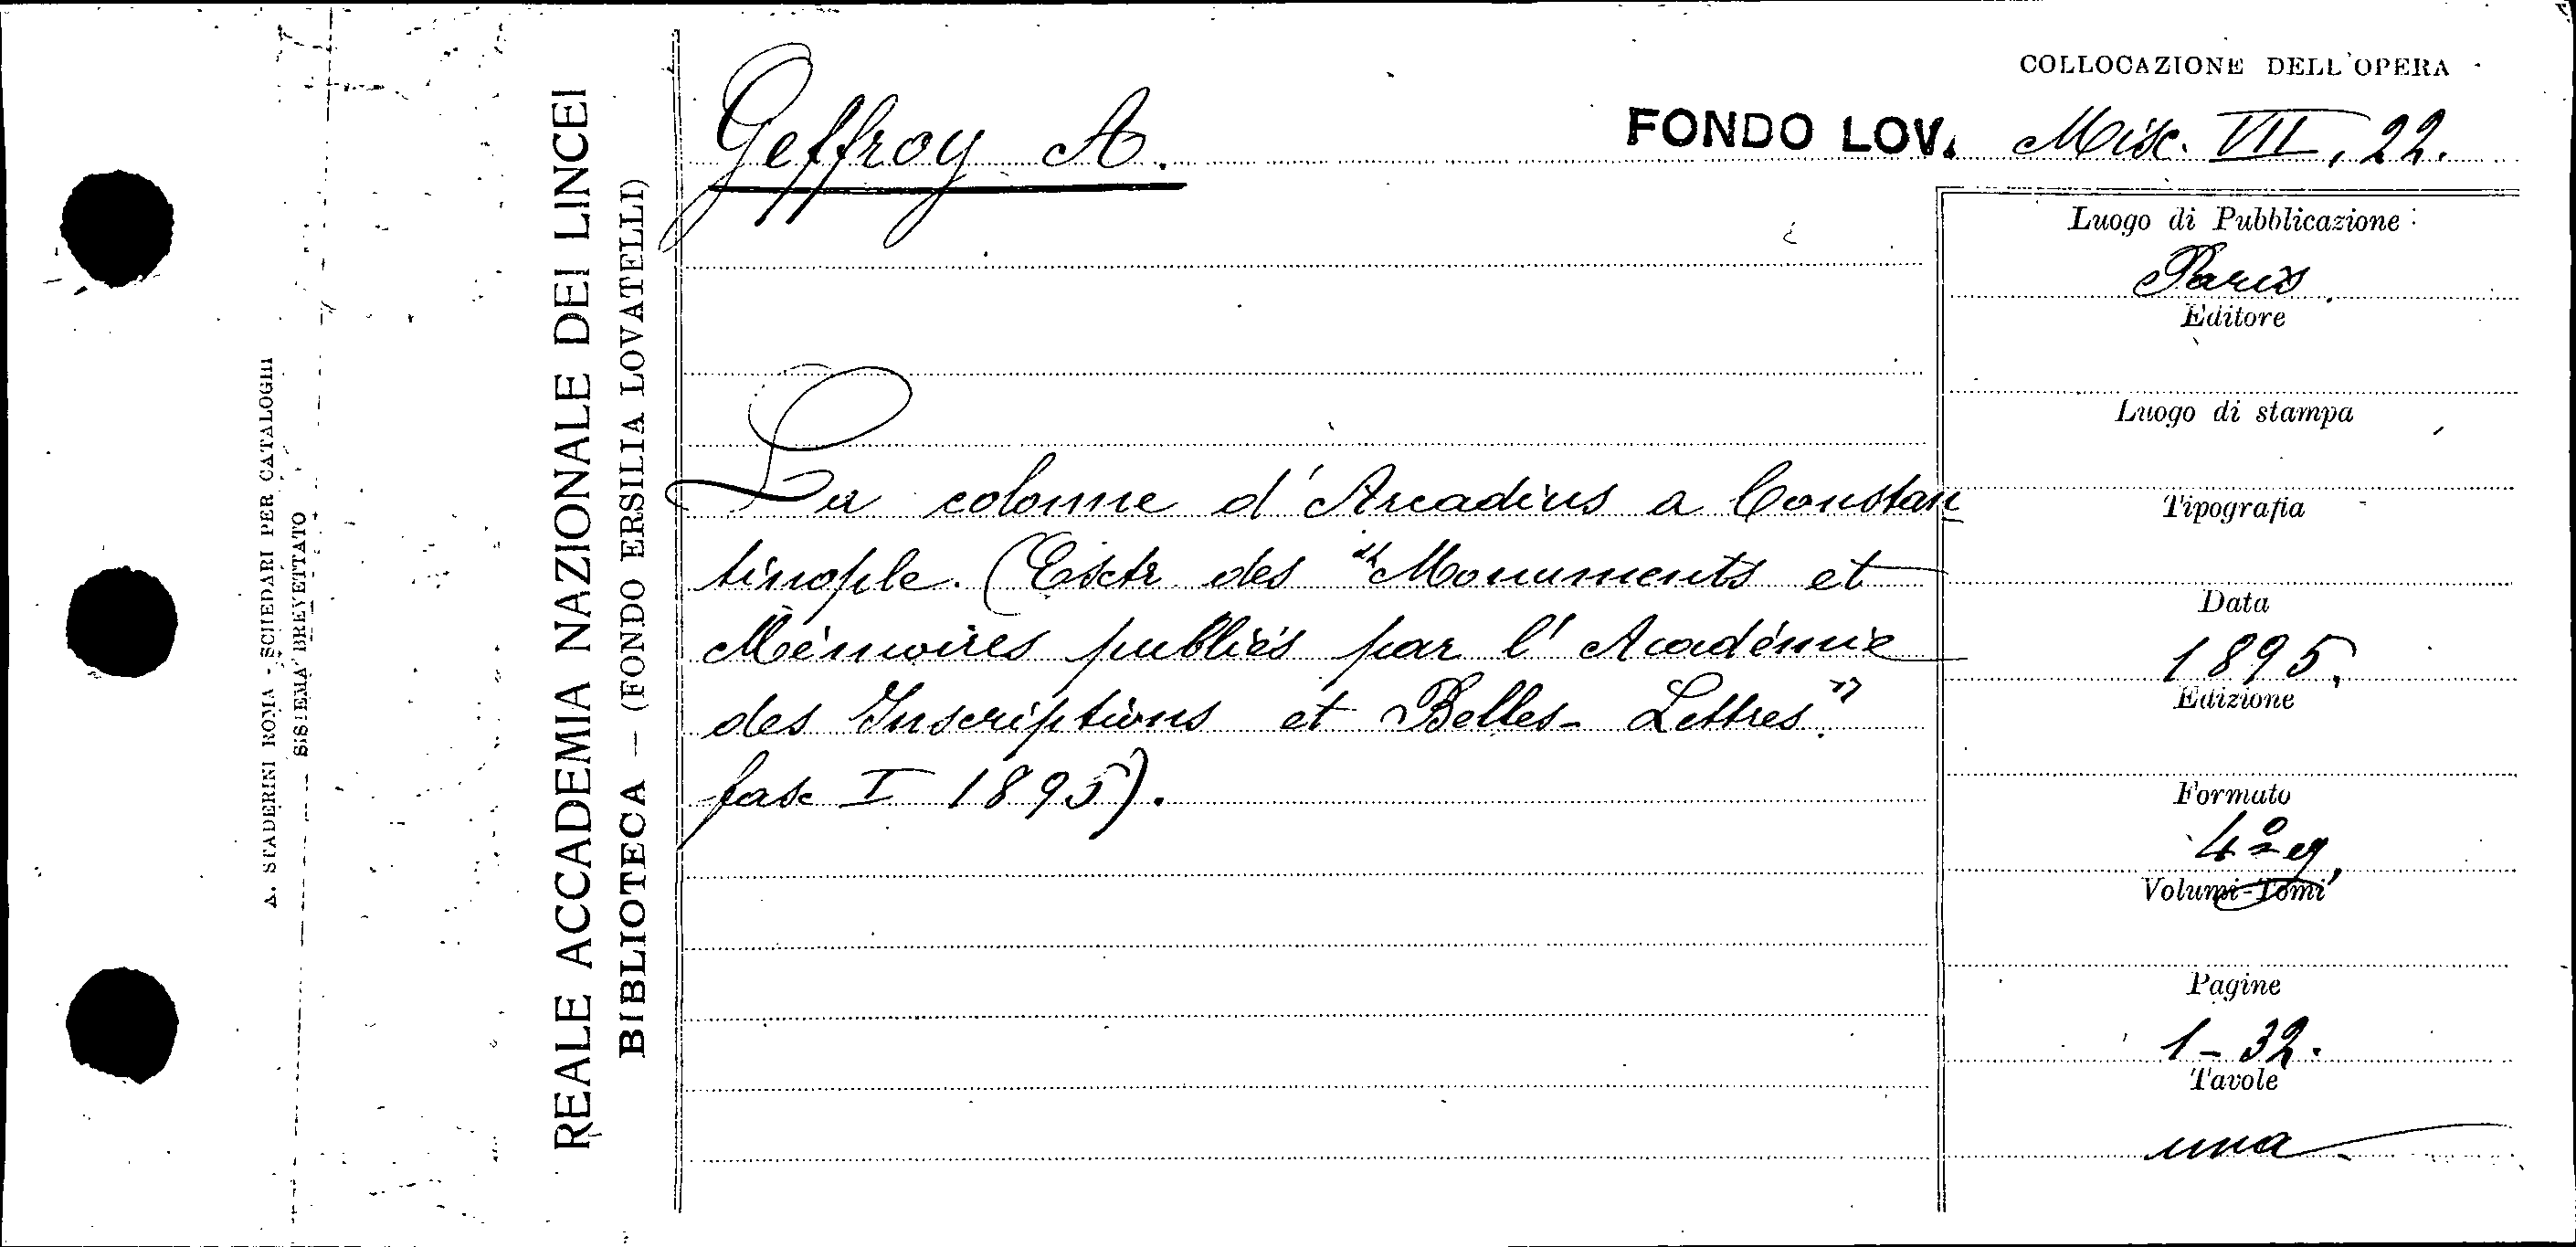 COLLOCAZIONE DELL'OPERA
Geffroy A.
FONDO LOV. Misc. VII, 22.
La colonne d'Arcadius a Constan
tinople. (Esctr des "Monuments et
Mémoires publiés par l'Académie
des Inscriptions et Belles-Lettres".
fasc I 1895).
Luogo di Pubblicazione
Paris
Editore
Luogo di stampa
Tipografia
Data
1895.
Edizione
Formato
4º g.
Volumi-Tomi
Pagine
1-32.
Tavole
una
REALE ACCADEMIA NAZIONALE DEI LINCEI
BIBLIOTECA — (FONDO ERSILIA LOVATELLI)
A. STADERINI ROMA - SCHEDARI PER CATALOGHI
SISTEMA BREVETTATO